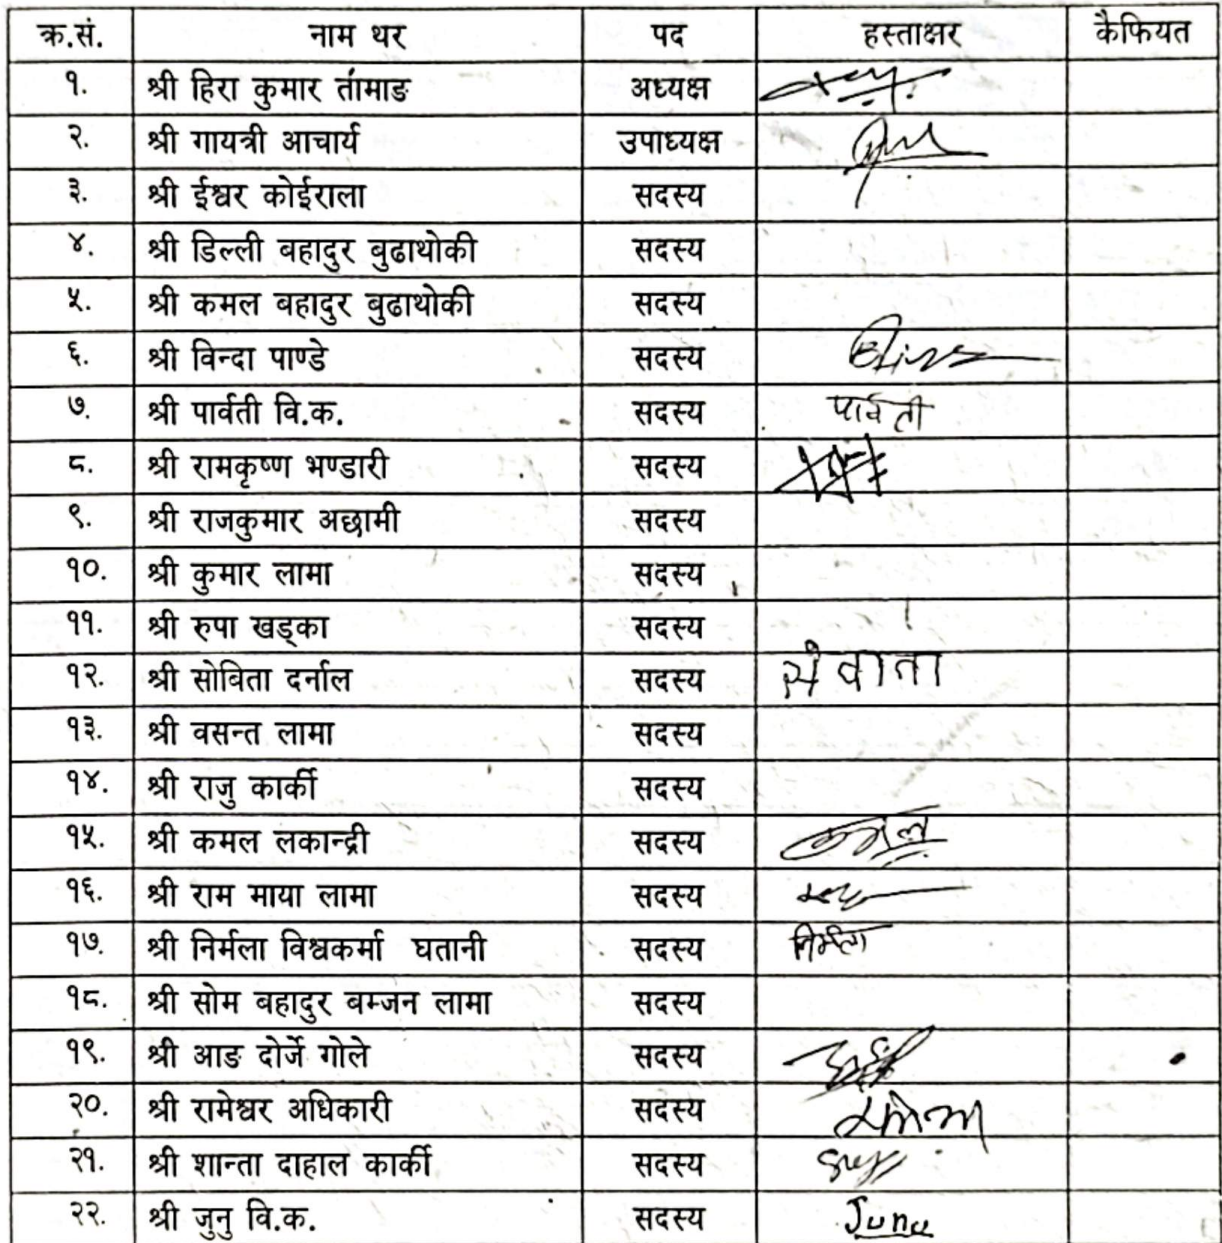 क्र.सं. नाम थर पद हस्ताक्षर कैफियत
१. श्री हिरा कुमार तांमाङ अध्यक्ष
२. श्री गायत्री आचार्य उपाध्यक्ष
३. श्री ईश्वर कोईराला सदस्य
४. श्री डिल्ली बहादुर बुढाथोकी सदस्य
५. श्री कमल बहादुर बुढाथोकी सदस्य
६. श्री विन्दा पाण्डे सदस्य
७. श्री पार्वती वि.क. सदस्य पार्वती
८. श्री रामकृष्ण भण्डारी सदस्य
९. श्री राजकुमार अछामी सदस्य
१०. श्री कुमार लामा सदस्य
११. श्री रुपा खड्का सदस्य
१२. श्री सोबिता दर्नाल सदस्य
१३. श्री वसन्त लामा सदस्य
१४. श्री राजु कार्की सदस्य
१५. श्री कमल लकान्द्री सदस्य कमल
१६. श्री राम माया लामा सदस्य
१७. श्री निर्मला विश्वकर्मा घतानी सदस्य निर्मला
१८. श्री सोम बहादुर बम्जन लामा सदस्य
१९. श्री आङ दोर्जे गोले सदस्य
२०. श्री रामेश्वर अधिकारी सदस्य
२१. श्री शान्ता दाहाल कार्की सदस्य
२२. श्री जुनु वि.क. सदस्य Junu